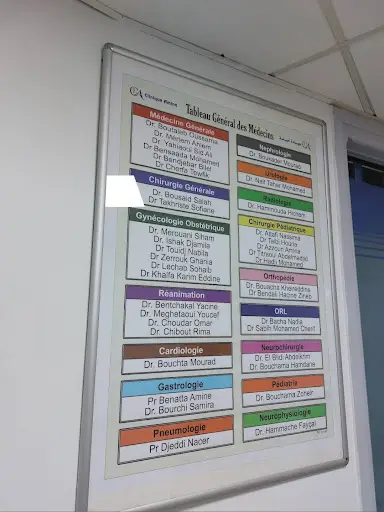 Tableau Général des Médecins
Médecine Générale
Dr. Boutaleb Oussama
Dr. Meriem Ahlem
Dr. Yahiaoui Sid Ali
Dr Bensaata Mohamed
Dr Bendjebar Bilel
Dr Cherfa Towfik
Chirurgie Générale
Dr. Bousaid Salah
Dr Takhriste Sofiane
Gynécologie Obstétrique
Dr. Merouani Siham
Dr. Ishak Djamila
Dr Touidj Nabila
Dr Zerrouk Ghania
Dr Lechap Sohaib
Dr Khalfa Karim Eddine
Réanimation
Dr. Bentchakal Yacine
Dr. Meghetaoui Youcef
Dr. Choudar Omar
Dr. Chibout Rima
Cardiologie
Dr. Bouchta Mourad
Gastrologie
Pr Benatta Amine
Dr. Bourchi Samira
Pneumologie
Pr Djeddi Nacer
Néphrologie
Dr. Boukader Mourad
Urologie
Dr. Neif Tahar Mohamed
Radiologie
Dr. Hammouda Hichem
Chirurgie Pédiatrique
Dr. Allafi Nassima
Dr Telbi Houria
Dr Azzouni Amine
Dr Titraoui Abdelmadjid
Dr Hadi Mohamed
Orthopédie
Dr. Bouacha Khereddine
Dr Bendali Hacine Zineb
ORL
Dr Bacha Nadia
Dr Sabih Mohamed Cherif
Neurochirurgie
Dr. El Bid Abdelkrim
Dr. Bouchama Hamdane
Pédiatrie
Dr. Bouchama Zoheir
Neurophysiologie
Dr. Hammache Fayçal